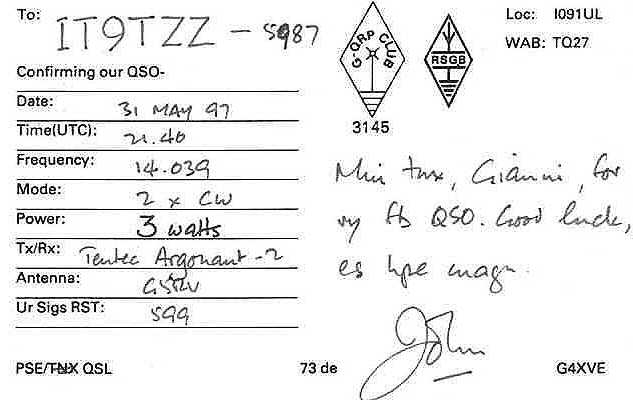 To: IT9TZZ - 5987
Confirming our QSO-
Date: 31 MAY 97
Time(UTC): 21.40
Frequency: 14.039
Mode: 2 x CW
Power: 3 watts
Tx/Rx: Tentec Argonaut -2
Antenna: G5RV
Ur Sigs RST: 599
PSE/TNX QSL
G-QRP CLUB
3145
RSGB
Loc: I091UL
WAB: TQ27
Mni tnx, Gianni, for
vy fb QSO. Good luck,
es hpe cuagn.
John
73 de
G4XVE